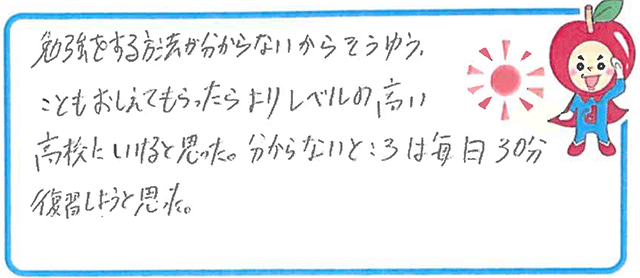 勉強をする方法が分からないからそうゆう、
こともおしえてもらったらよりレベルの高い
高校にいけると思った。分からないところは毎日30分
復習しようと思った。
d